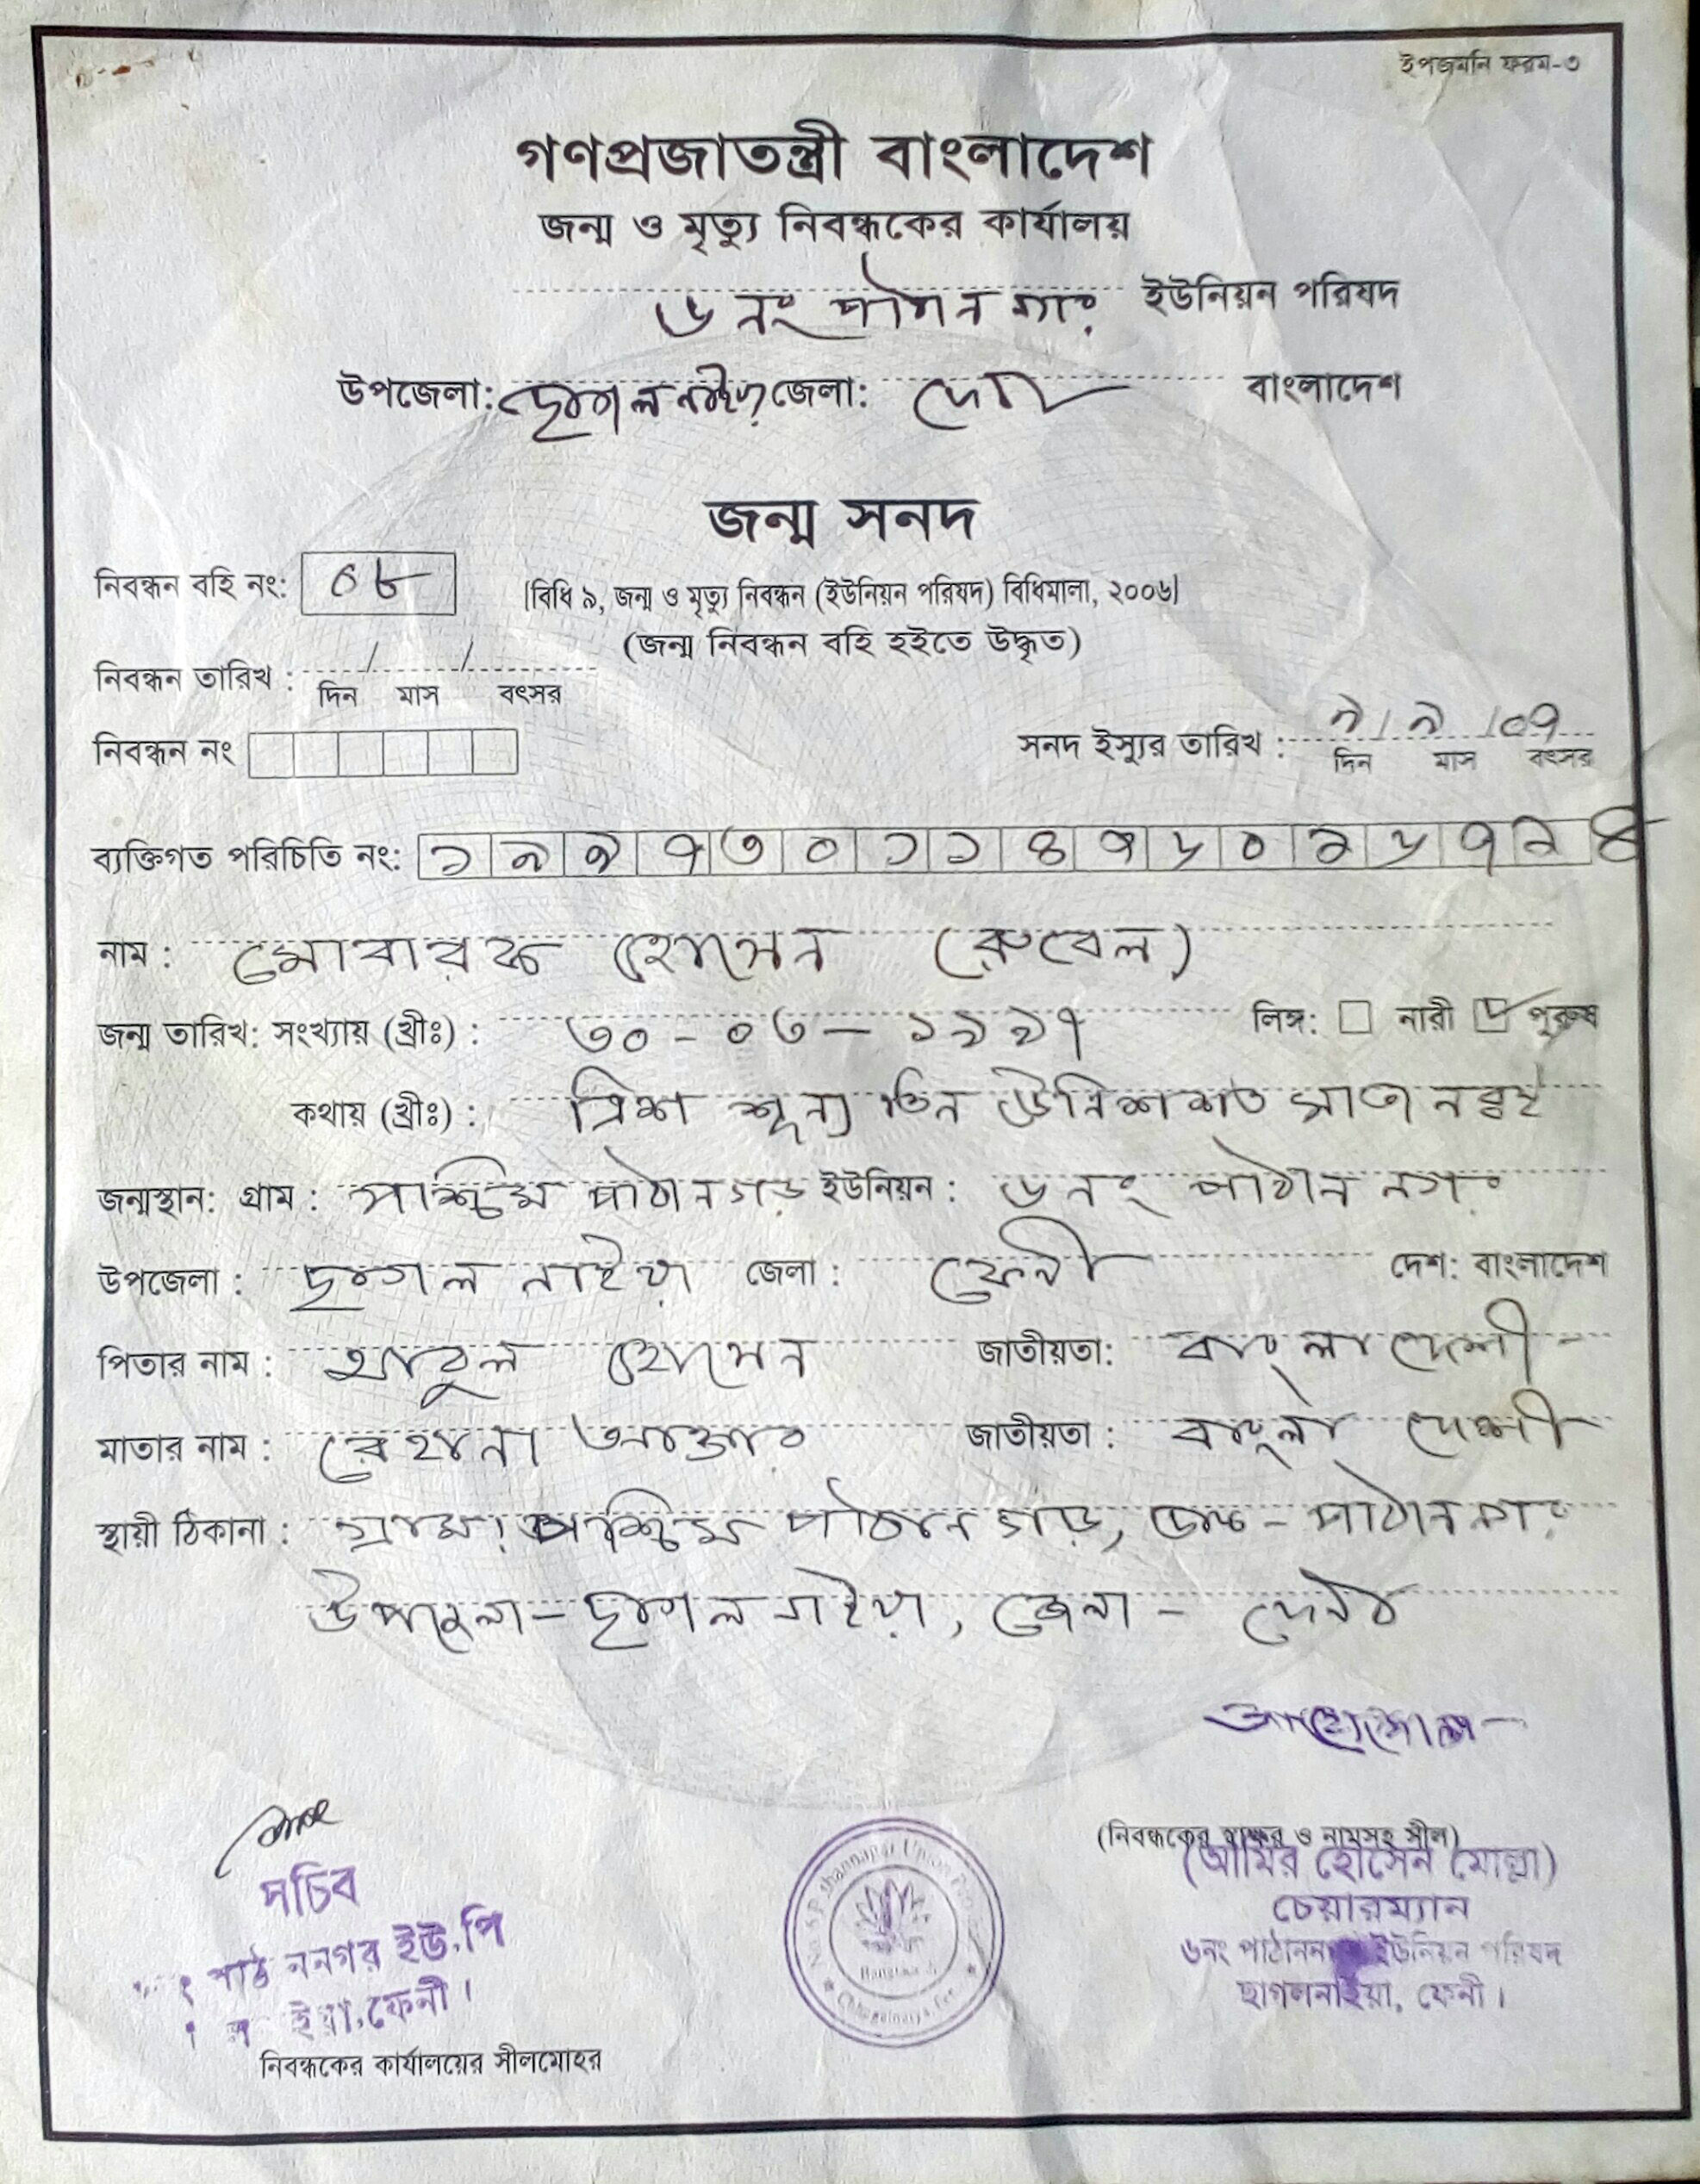 ইপজমনি ফরম-৩
গণপ্রজাতন্ত্রী বাংলাদেশ
জন্ম ও মৃত্যু নিবন্ধকের কার্যালয়
৬ নং পাঠান নগর ইউনিয়ন পরিষদ
উপজেলা: ছাগল নাইয়া জেলা: ফেনী বাংলাদেশ
জন্ম সনদ
নিবন্ধন বহি নং: ০৮ [বিধি ৯, জন্ম ও মৃত্যু নিবন্ধন (ইউনিয়ন পরিষদ) বিধিমালা, ২০০৬]
(জন্ম নিবন্ধন বহি হইতে উদ্ধৃত)
নিবন্ধন তারিখ : / /
দিন মাস বৎসর
নিবন্ধন নং সনদ ইস্যুর তারিখ : ৯/৯/০৭
দিন মাস বৎসর
ব্যক্তিগত পরিচিতি নং:
নাম : মোবারক হোসেন (রুবেল)
জন্ম তারিখ: সংখ্যায় (খ্রীঃ) : ৩০-০৩-১৯৯৭ লিঙ্গ: নারী পুরুষ
কথায় (খ্রীঃ) : ত্রিশ শূন্য তিন উনিশ শত সাত নব্বই
জন্মস্থান: গ্রাম : পশ্চিম পাঠানগড় ইউনিয়ন : ৬ নং পাঠান নগর
উপজেলা : ছাগল নাইয়া জেলা : ফেনী দেশ: বাংলাদেশ
পিতার নাম : আবুল হোসেন জাতীয়তা: বাংলাদেশী
মাতার নাম : রেহানা আক্তার জাতীয়তা : বাংলাদেশী
স্থায়ী ঠিকানা : গ্রামঃ পশ্চিম পাঠান গড়, ডাক - পাঠান নগর
উপজেলা - ছাগল নাইয়া, জেলা - ফেনী
(নিবন্ধকের স্বাক্ষর ও নামসহ সীল)
(আমির হোসেন মোল্লা)
চেয়ারম্যান
৬নং পাঠাননগর ইউনিয়ন পরিষদ
ছাগলনাইয়া, ফেনী।
সচিব
পাঠাননগর ইউ.পি
ইয়া, ফেনী।
নিবন্ধকের কার্যালয়ের সীলমোহর